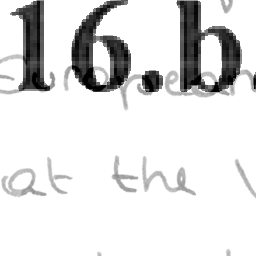 16.b.
European
at the